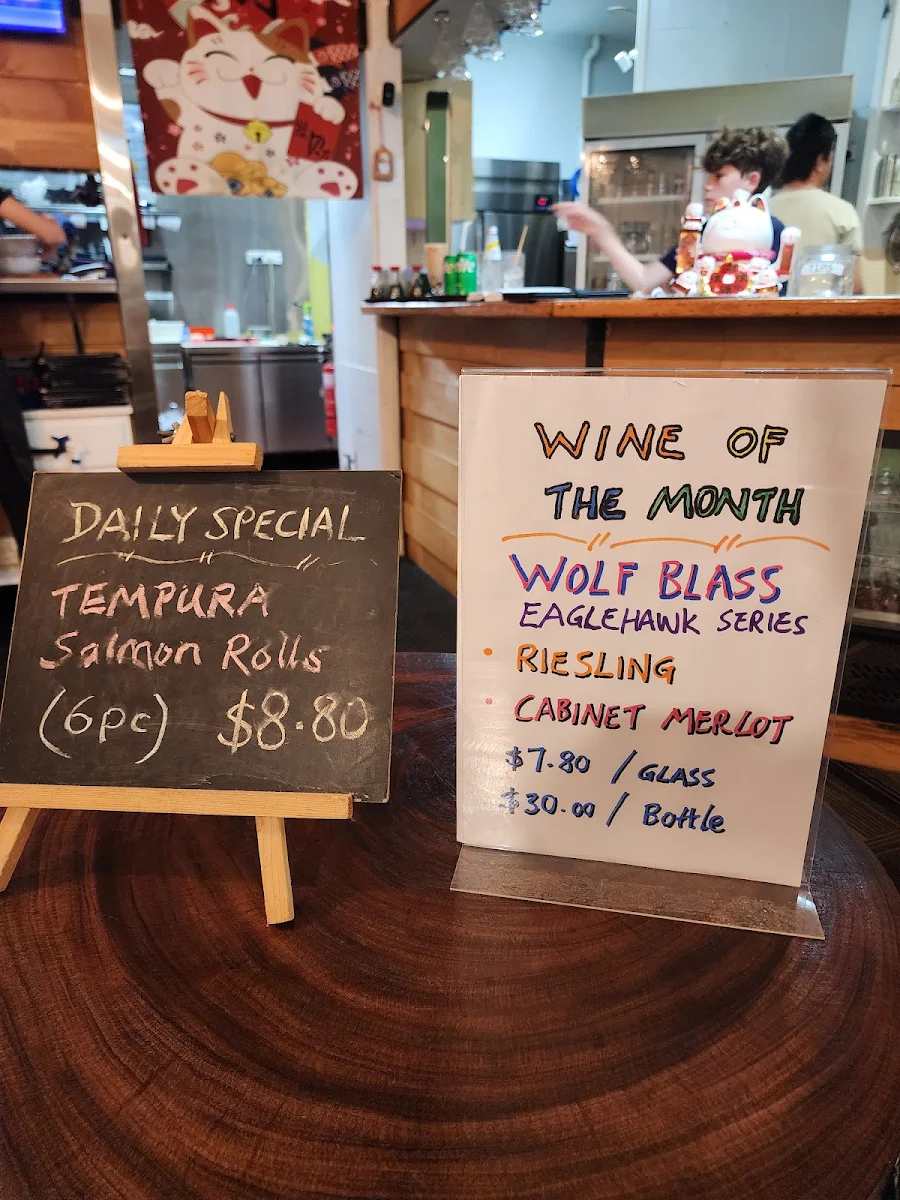 DAILY SPECIAL
TEMPURA
Salmon Rolls
(6pc) $8.80
WINE OF
THE MONTH
WOLF BLASS
EAGLEHAWK SERIES
• RIESLING
• CABINET MERLOT
$7.80 / GLASS
$30.00 / Bottle
TIPS